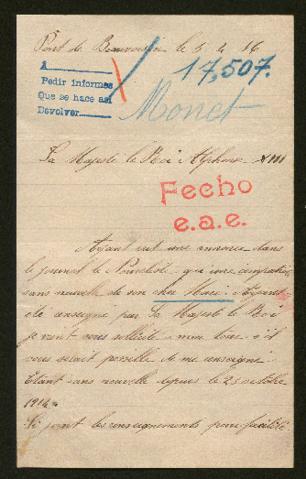 Pont de Beauvoisin le 5 4 16
A
Pedir informes
Que se hace así
Devolver
17,507.
Monet
Sa Majesté le Roi Alphonse XIII
Fecho
e.a.e.
Ayant vut une annonce dans
le Journal le Nouvelist qui une
sans nouvelle de son cher Mari. Ayant
ete enseigné par Sa Majesté le Roi
je vient vous sollicité a mon tour s'il
vous serait possible de me renseigné.
Etant sans nouvelle depuis le 25 octobre
1914.
Ci joint les renseignements pour facilité